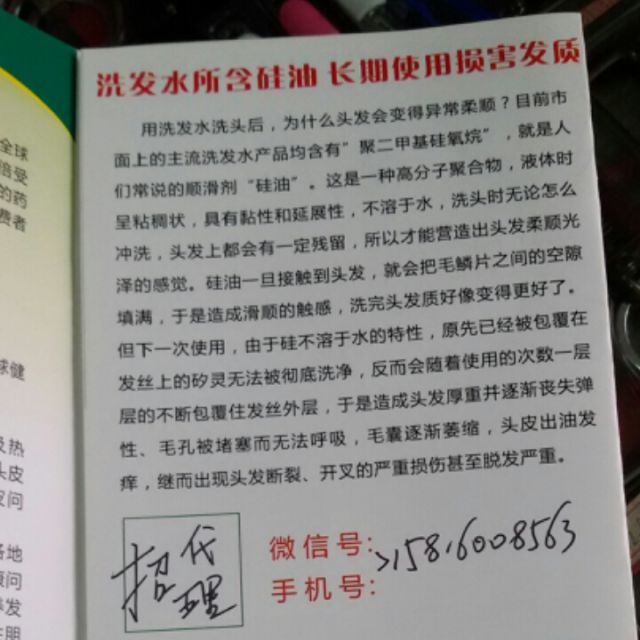 洗发水所含硅油 长期使用损害发质
用洗发水洗头后，为什么头发会变得异常柔顺？目前市
面上的主流洗发水产品均含有"聚二甲基硅氧烷"，就是人
们常说的顺滑剂"硅油"。这是一种高分子聚合物，液体时
呈粘稠状，具有黏性和延展性，不溶于水，洗头时无论怎么
冲洗，头发上都会有一定残留，所以才能营造出头发柔顺光
泽的感觉。硅油一旦接触到头发，就会把毛鳞片之间的空隙
填满，于是造成滑顺的触感，洗完头发质好像变得更好了。
但下一次使用，由于硅不溶于水的特性，原先已经被包覆在
发丝上的矽灵无法被彻底洗净，反而会随着使用的次数一层
层的不断包覆住发丝外层，于是造成头发厚重并逐渐丧失弹
性、毛孔被堵塞而无法呼吸，毛囊逐渐萎缩，头皮出油发
痒，继而出现头发断裂、开叉的严重损伤甚至脱发严重。
招代理
微信号：
手机号：
15816008563
全球
倍受
的药
费者
球健
及热
头皮
各地